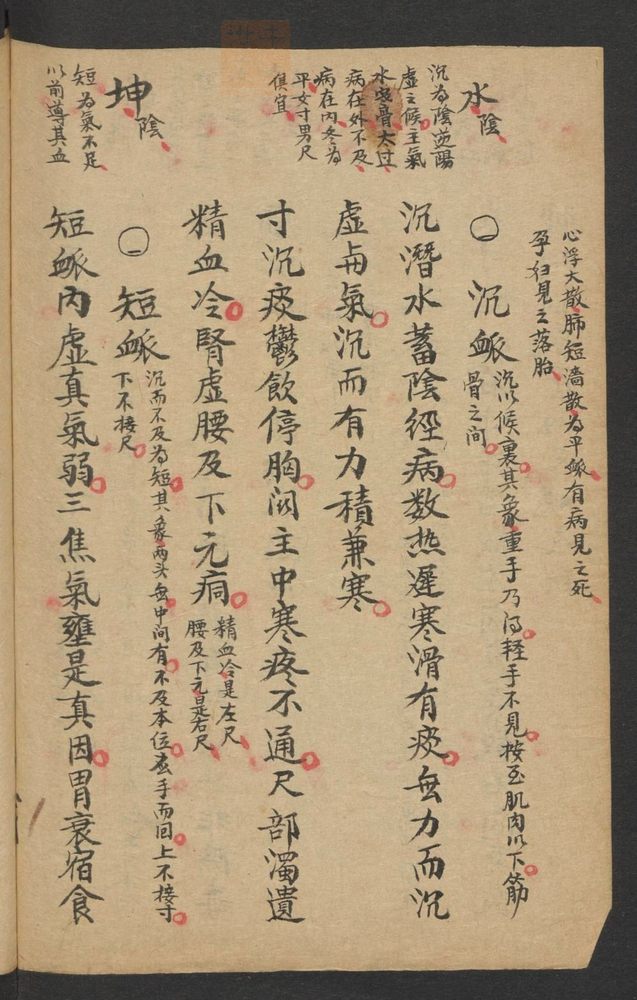 心浮大散肺短濇散為平脈有病見之死
孕妇見之落胎
水陰
沉為陰逆陽
虛之候主氣
水凌骨太过
病在外不及
病在内冬为
平女寸男尺
俱宜
○沉脈沉以候裏其象重手乃得轻手不見按至肌肉以下筋
骨之间
沉潛水蓄陰經病数热遲寒滑有痰無力而沉
虛毋氣沉而有力積兼寒
寸沉痰鬱飲停胸関主中寒疼不通尺部濁遺
精血冷腎虛腰及下元痌精血冷是左尺
腰及下元是右尺
坤陰
短為氣不足
以前導其血
○短脈沉而不及為短其象两头無中间有不及本位应手而回上不接寸
下不接尺
短脈内虛真氣弱三焦氣壅是真因胃衰宿食